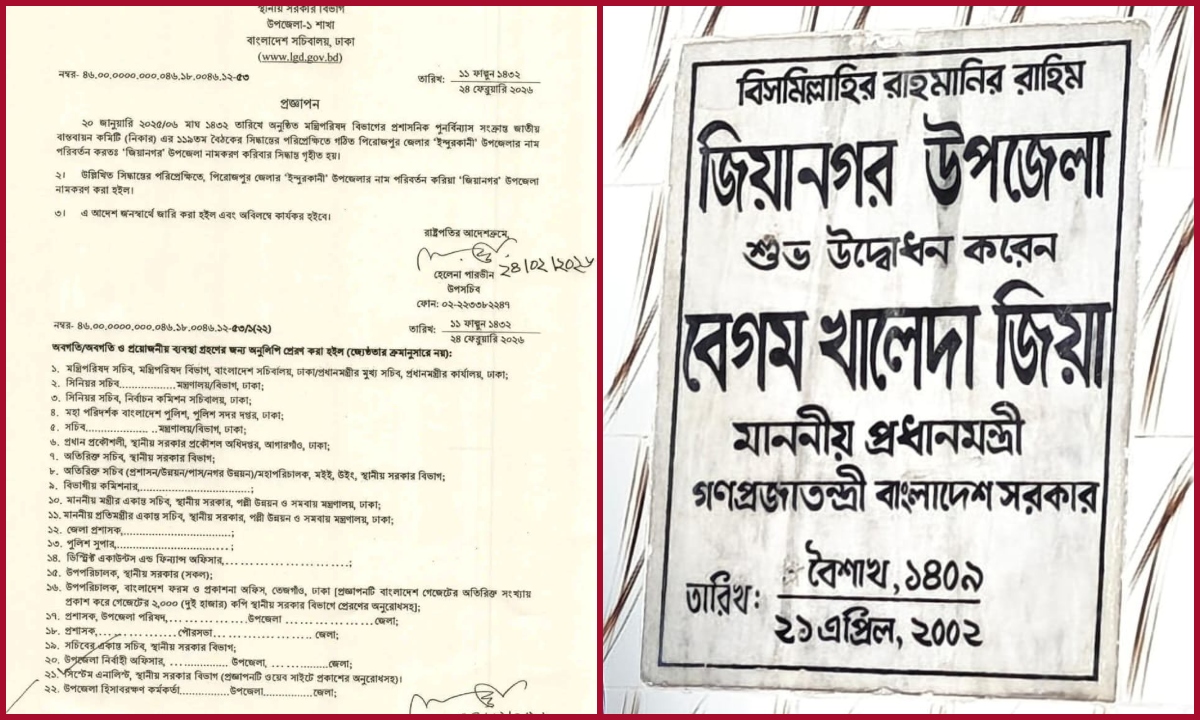 স্থানীয় সরকার বিভাগ
উপজেলা-১ শাখা
বাংলাদেশ সচিবালয়, ঢাকা
(www.lgd.gov.bd)
নম্বর- ৪৬.০০.০০০০.০০০.০৪৬.১৮.০০৪৬.১২-৫৩
তারিখ: ১১ ফাল্গুন ১৪৩২
২৪ ফেব্রুয়ারি ২০২৬
প্রজ্ঞাপন
২০ জানুয়ারি ২০২৫/০৬ মাঘ ১৪৩২ তারিখে অনুষ্ঠিত মন্ত্রিপরিষদ বিভাগের প্রশাসনিক পুনর্বিন্যাস সংক্রান্ত জাতীয়
বাস্তবায়ন কমিটি (নিকার) এর ১১৯তম বৈঠকের সিদ্ধান্তের পরিপ্রেক্ষিতে গঠিত পিরোজপুর জেলার 'ইন্দুরকানী' উপজেলার নাম
পরিবর্তন করতঃ 'জিয়ানগর' উপজেলা নামকরণ করিবার সিদ্ধান্ত গৃহীত হয়।
২। উল্লিখিত সিদ্ধান্তের পরিপ্রেক্ষিতে, পিরোজপুর জেলার 'ইন্দুরকানী' উপজেলার নাম পরিবর্তন করিয়া 'জিয়ানগর' উপজেলা
নামকরণ করা হইল।
৩। এ আদেশ জনস্বার্থে জারি করা হইল এবং অবিলম্বে কার্যকর হইবে।
রাষ্ট্রপতির আদেশক্রমে,
২৪/০২/২০২৬
হেলেনা পারভীন
উপসচিব
ফোন: ০২-২২৩৩৮২২৪৭
নম্বর- ৪৬.০০.০০০০.০০০.০৪৬.১৮.০০৪৬.১২-৫৩/১(২২)
তারিখ: ১১ ফাল্গুন ১৪৩২
২৪ ফেব্রুয়ারি ২০২৬
অবগতি/অবগতি ও প্রয়োজনীয় ব্যবস্থা গ্রহণের জন্য অনুলিপি প্রেরণ করা হইল (জ্যেষ্ঠতার ক্রমানুসারে নয়):
১. মন্ত্রিপরিষদ সচিব, মন্ত্রিপরিষদ বিভাগ, বাংলাদেশ সচিবালয়, ঢাকা/প্রধানমন্ত্রীর মুখ্য সচিব, প্রধানমন্ত্রীর কার্যালয়, ঢাকা;
২. সিনিয়র সচিব..................মন্ত্রণালয়/বিভাগ, ঢাকা;
৩. সিনিয়র সচিব, নির্বাচন কমিশন সচিবালয়, ঢাকা;
৪. মহা পরিদর্শক বাংলাদেশ পুলিশ, পুলিশ সদর দপ্তর, ঢাকা;
৫. সচিব.................. ..মন্ত্রণালয়/বিভাগ, ঢাকা;
৬. প্রধান প্রকৌশলী, স্থানীয় সরকার প্রকৌশল অধিদপ্তর, আগারগাঁও, ঢাকা;
৭. অতিরিক্ত সচিব, স্থানীয় সরকার বিভাগ;
৮. অতিরিক্ত সচিব (প্রশাসন/উন্নয়ন/পাস/নগর উন্নয়ন)/মহাপরিচালক, মইই, উইং, স্থানীয় সরকার বিভাগ;
৯. বিভাগীয় কমিশনার,..............................;
১০. মাননীয় মন্ত্রীর একান্ত সচিব, স্থানীয় সরকার, পল্লী উন্নয়ন ও সমবায় মন্ত্রণালয়, ঢাকা;
১১. মাননীয় প্রতিমন্ত্রীর একান্ত সচিব, স্থানীয় সরকার, পল্লী উন্নয়ন ও সমবায় মন্ত্রণালয়, ঢাকা;
১২. জেলা প্রশাসক,..............................;
১৩. পুলিশ সুপার,..............................;
১৪. ডিস্ট্রিক্ট একাউন্টস এন্ড ফিন্যান্স অফিসার,..............................;
১৫. উপপরিচালক, স্থানীয় সরকার (সকল);
১৬. উপপরিচালক, বাংলাদেশ ফরম ও প্রকাশনা অফিস, তেজগাঁও, ঢাকা [প্রজ্ঞাপনটি বাংলাদেশ গেজেটের অতিরিক্ত সংখ্যায়
প্রকাশ করে গেজেটের ২,০০০ (দুই হাজার) কপি স্থানীয় সরকার বিভাগে প্রেরণের অনুরোধসহ];
১৭. প্রশাসক, উপজেলা পরিষদ,..................উপজেলা ....................জেলা;
১৮. প্রশাসক,..................পৌরসভা ....................জেলা;
১৯. সচিবের একান্ত সচিব, স্থানীয় সরকার বিভাগ;
২০. উপজেলা নির্বাহী অফিসার, .............. উপজেলা, ..............জেলা;
২১. সিস্টেম এনালিস্ট, স্থানীয় সরকার বিভাগ (প্রজ্ঞাপনটি ওয়েব সাইটে প্রকাশের অনুরোধসহ)।
২২. উপজেলা হিসাবরক্ষণ কর্মকর্তা..............উপজেলা..............জেলা;
বিসমিল্লাহির রাহমানির রাহিম
জিয়ানগর উপজেলা
শুভ উদ্বোধন করেন
বেগম খালেদা জিয়া
মাননীয় প্রধানমন্ত্রী
গণপ্রজাতন্ত্রী বাংলাদেশ সরকার
তারিখ: বৈশাখ, ১৪০৯
২১ এপ্রিল, ২০০২